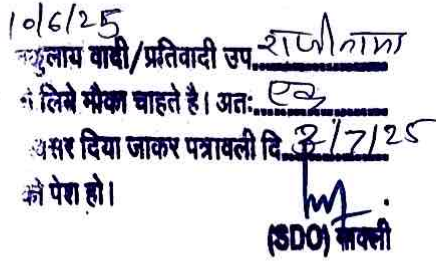 10/6/25
वकुलाय वादी/प्रतिवादी उप. राजीनामा
के लिये मौका चाहते है। अतः एक
अवसर दिया जाकर पत्रावली दि. 3/7/25
को पेश हो।
(SDO)